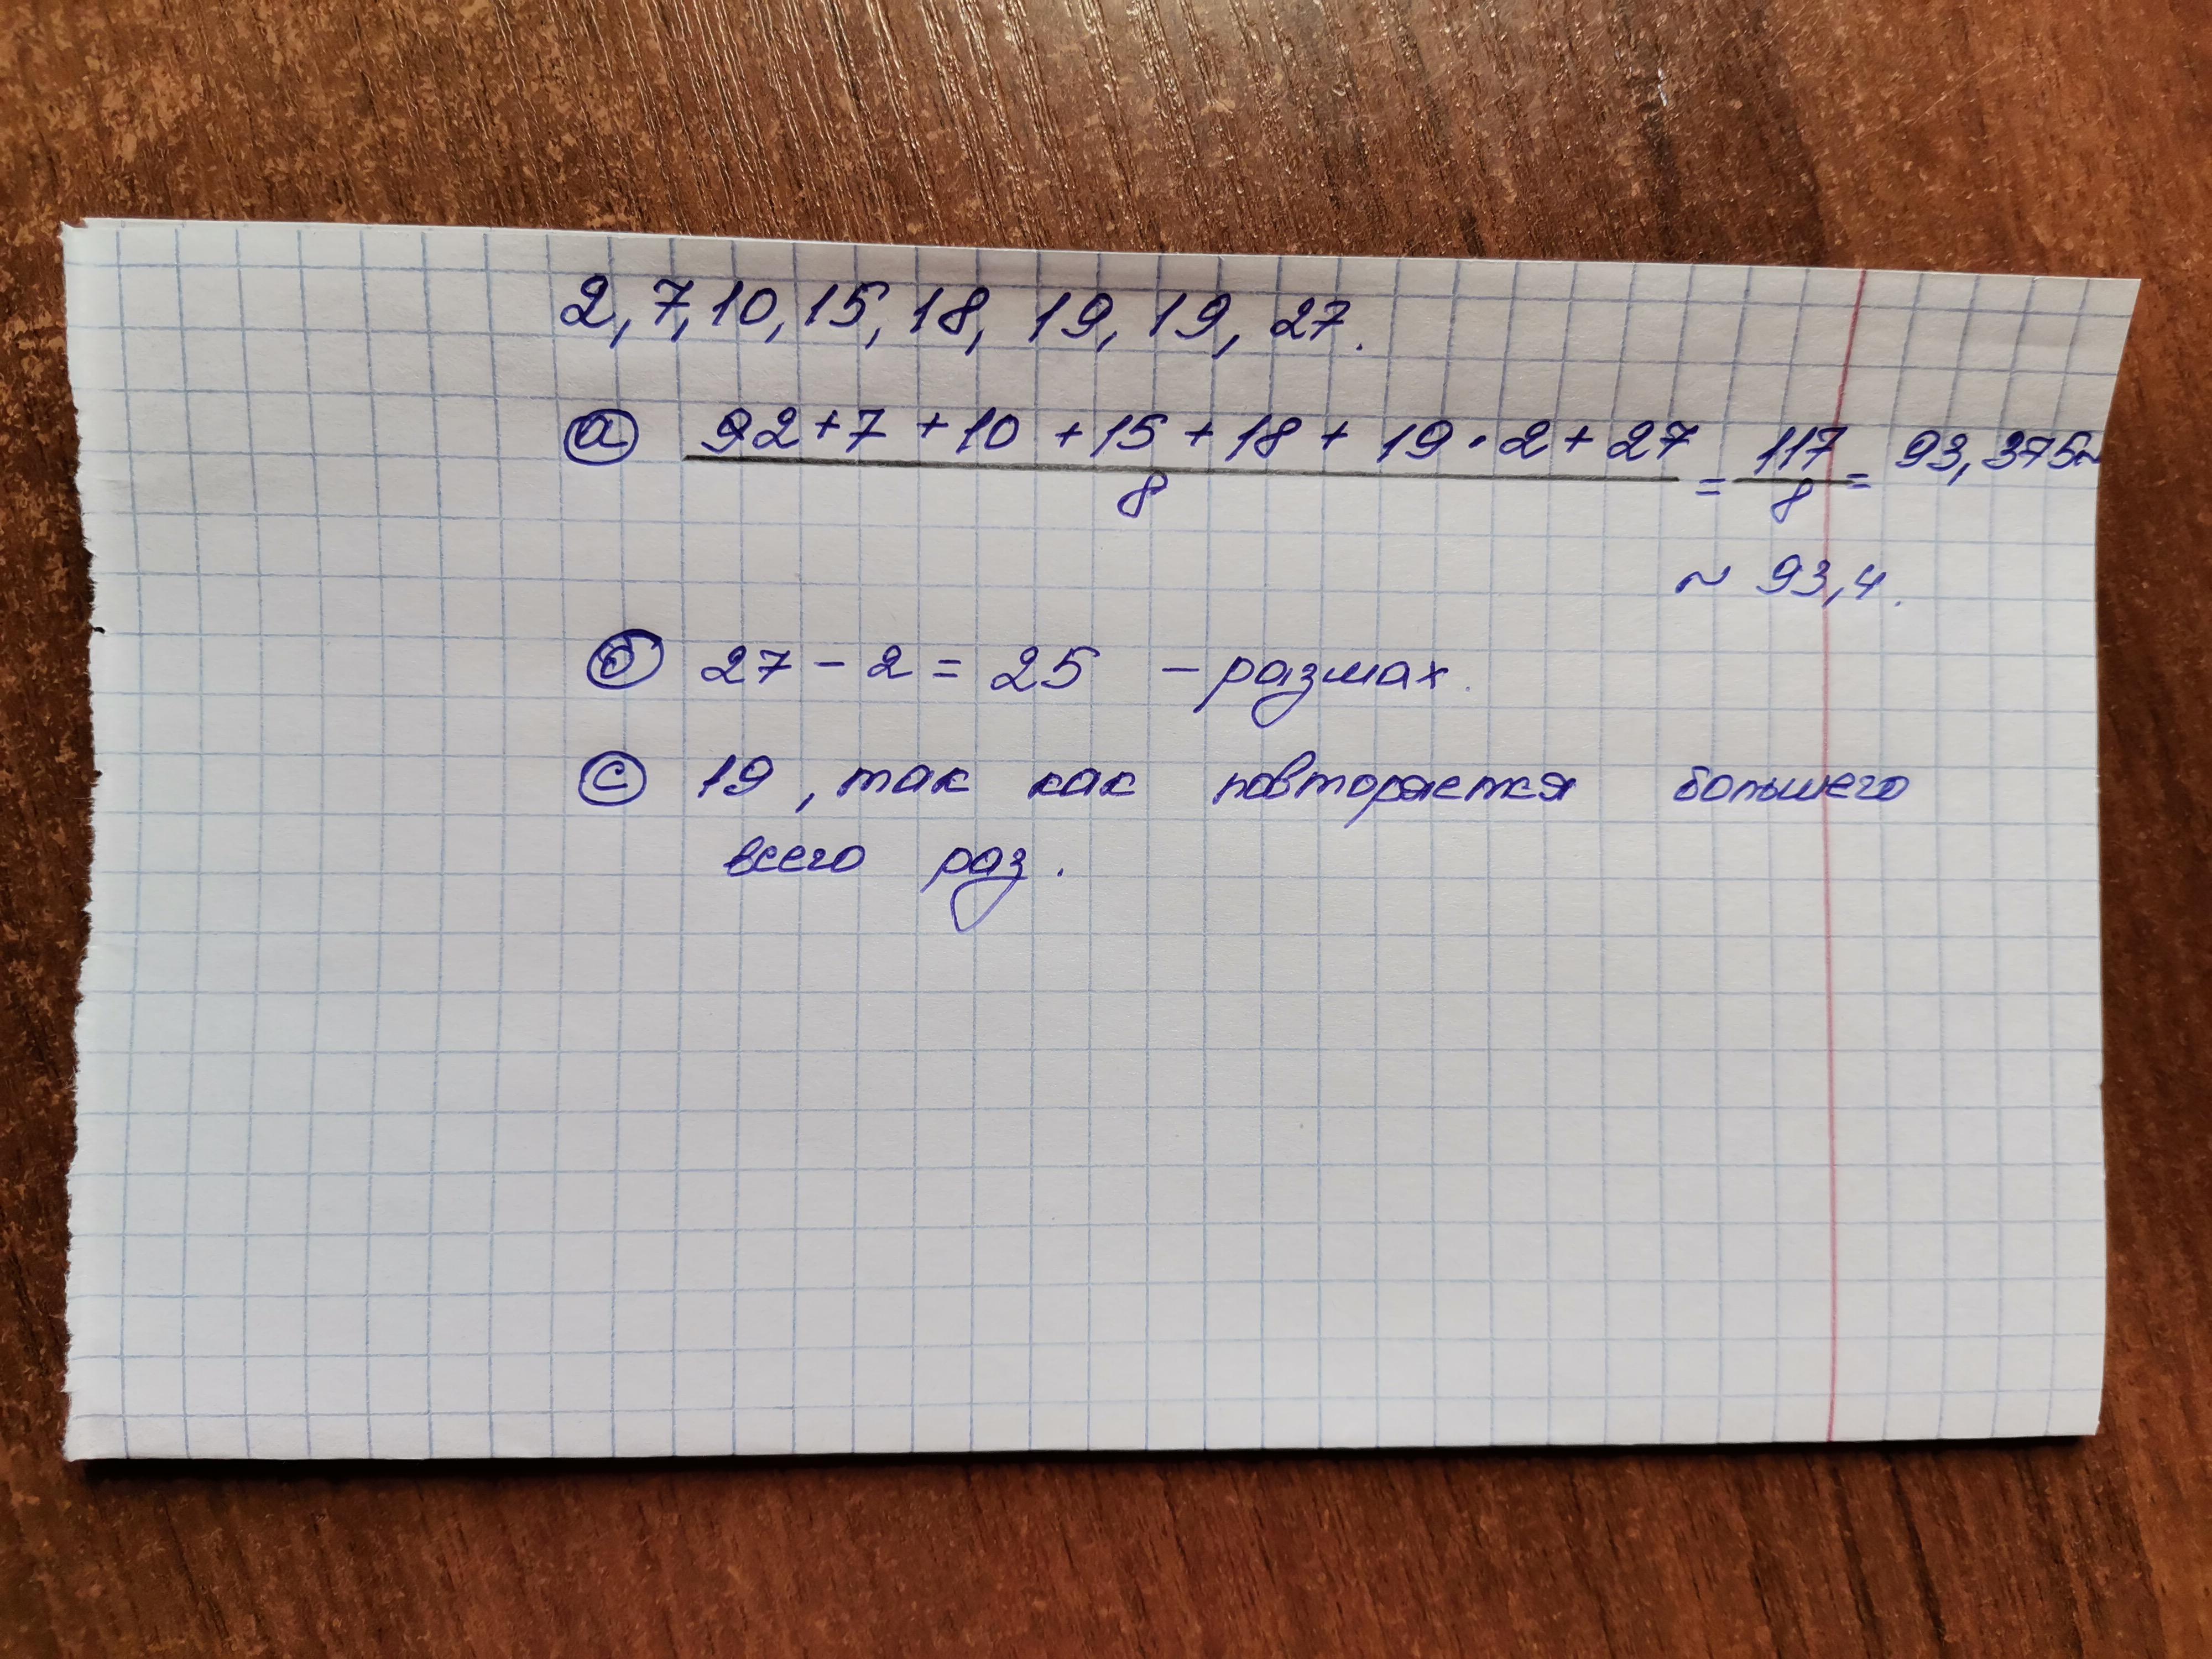 2, 7, 10, 15, 18, 19, 19, 27.
а 92+7+10+15+18+19·2+27 = 117 = 93,375≈
8 8
≈ 93,4.
б 27-2=25 - размах.
с 19, так как повторяется большего
всего раз.